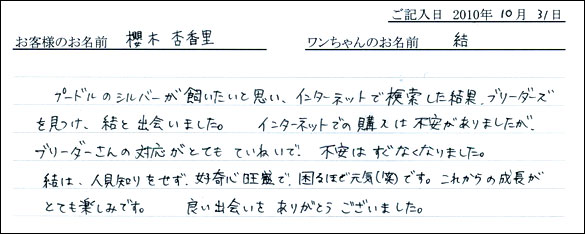 ご記入日 2010年 10月 31日
お客様のお名前 櫻木 杏香里 ワンちゃんのお名前 結
プードルのシルバーが飼いたいと思い、インターネットで検索した結果、ブリーダーズ
を見つけ、結と出会いました。 インターネットでの購入は不安がありましたが、
ブリーダーさんの対応がとてもていねいで、不安はすぐなくなりました。
結は、人見知りをせず、好奇心旺盛で、困るほど元気(笑)です。これからの成長が
とても楽しみです。 良い出会いをありがとうございました。